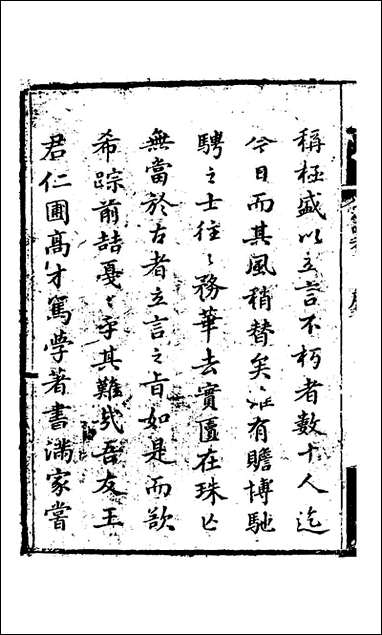 稱極盛以立言不朽者數十人迄
今日而其風稍替矣雖有贍博馳
騁之士往〻務華去實匵在珠亡
無當於古者立言之旨如是而欲
希踪前喆戞〻乎其難哉吾友王
君仁圃高才篤學著書滿家嘗